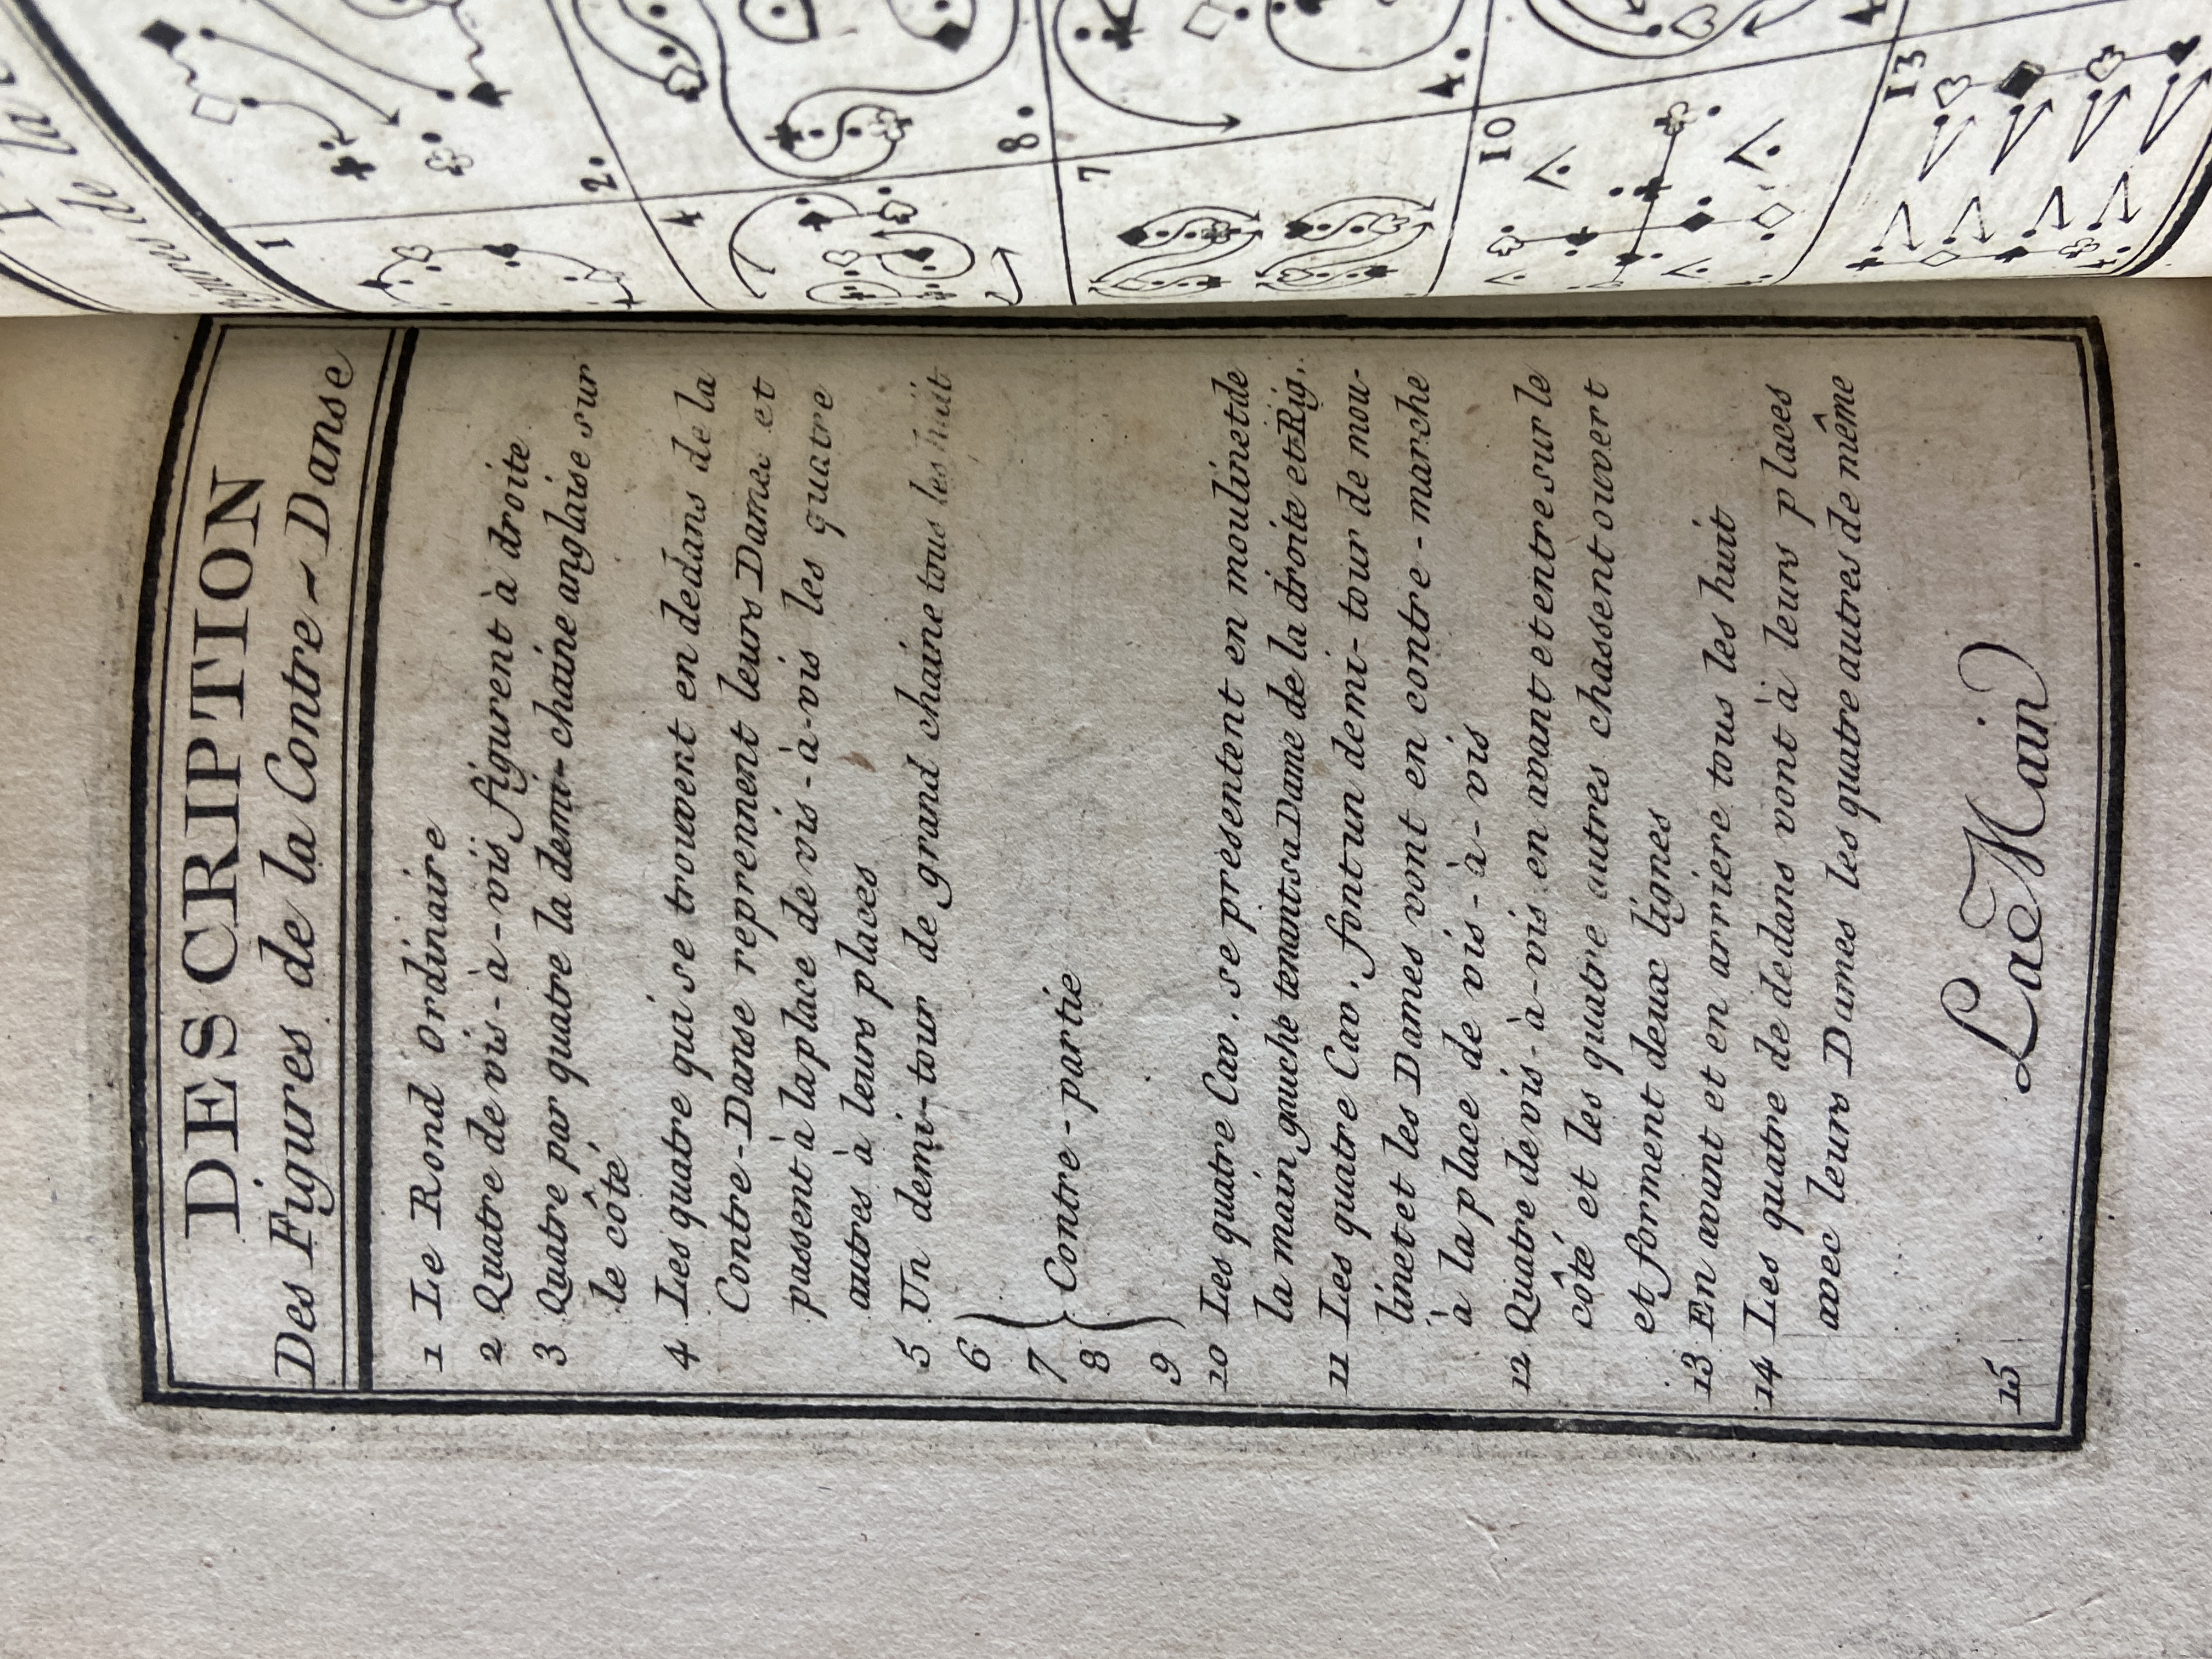 DESCRIPTION
Des Figures de la Contre-Danse
1 Le Rond Ordinaire
2 Quatre de vis-à-vis figurent à droite
3 Quatre par quatre la demi-chaine anglaise sur
le côté
4 Les quatre qui se trouvent en dedans de la
Contre-Danse reprennent leurs Dames et
passent à la place de vis-à-vis les quatre
autres à leurs places
5 Un demi-tour de grand chaine tous les huit
6
7
8
9
Contre-partie
10 Les quatre Cav. se presentent en moulinet de
la main gauche tenant sa Dame de la droite et Rig.
11 Les quatre Cav. font un demi-tour de mou-
linet et les Dames vont en contre-marche
à la place de vis-à-vis
12 Quatre de vis-à-vis en avant et entre sur le
côté et les quatre autres chassent ouvert
et forment deux lignes
13 En avant et en arriere tous les huit
14 Les quatre de dedans vont à leurs places
avec leurs Dames les quatre autres de même
15
La Main
de la
1
2.
4
8.
7
4.
10
13